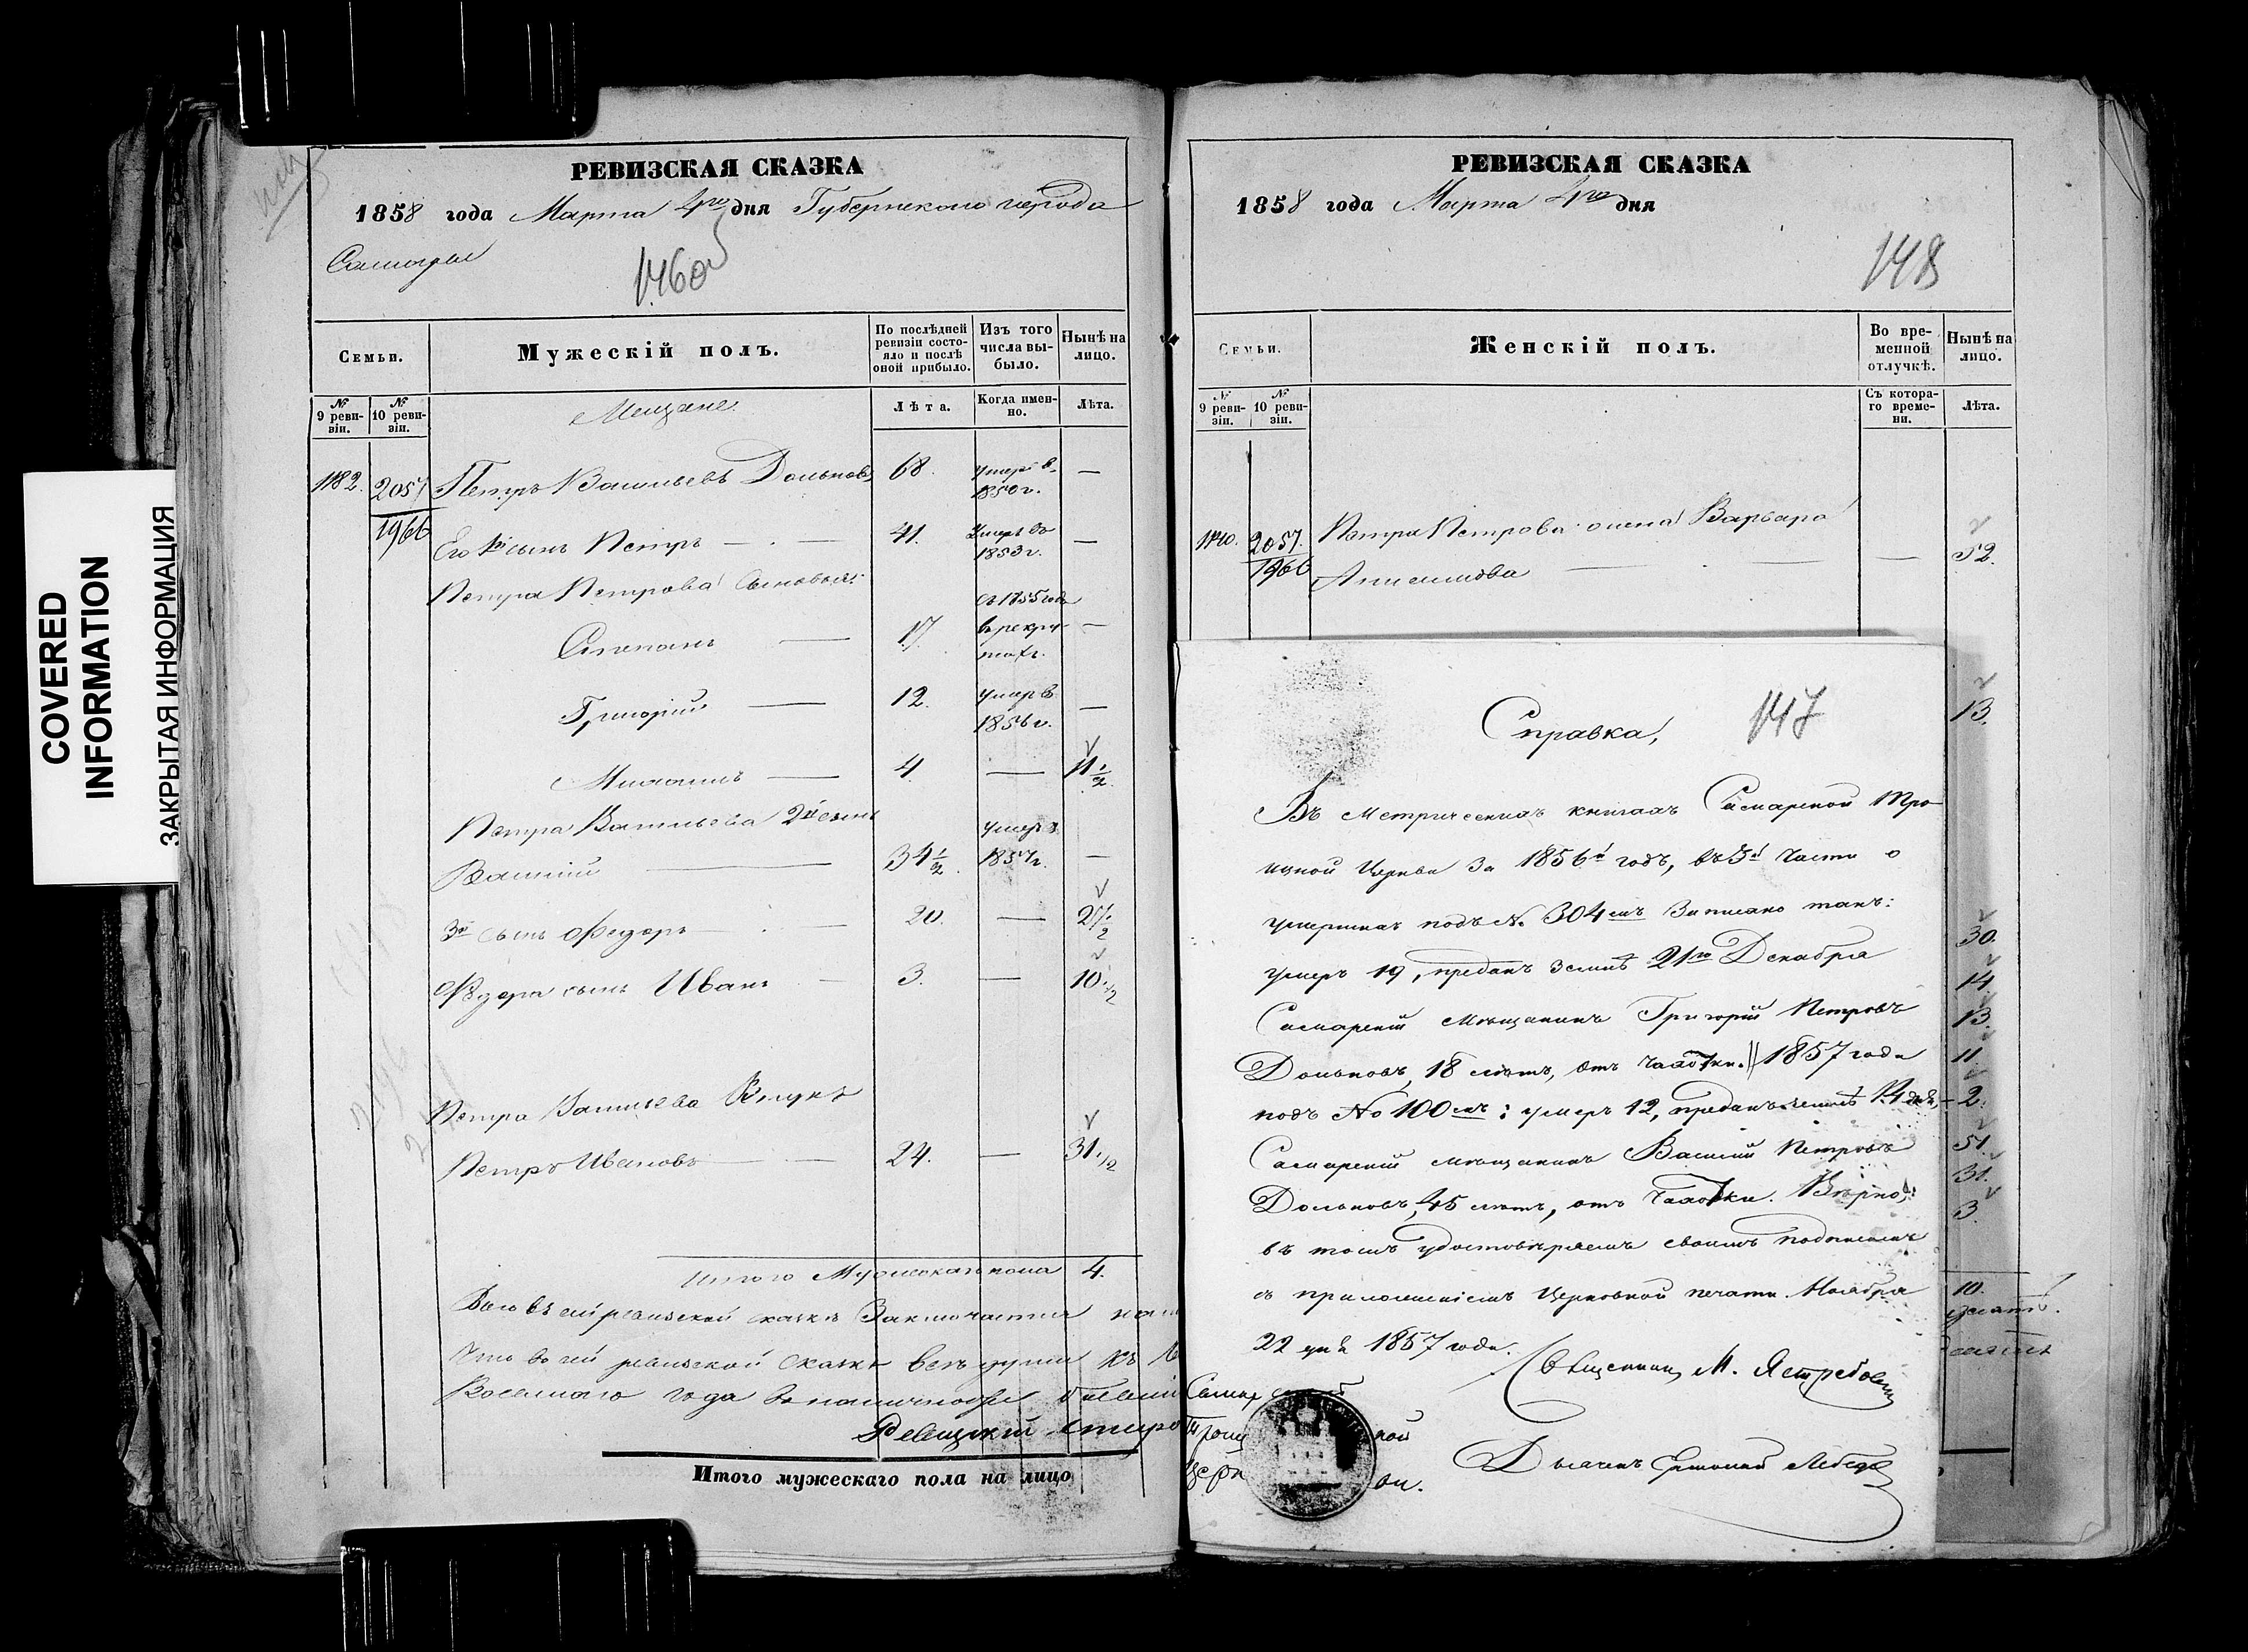 COVERED
INFORMATION
ЗАКРЫТАЯ ИНФОРМАЦИЯ
РЕВИЗСКАЯ СКАЗКА
1858 года Марта 4го дня Губернскаго города
Самары
146об
Семьи.
Мужескій полъ.
По послѣдней ревизіи состояло и послѣ оной прибыло.
Изъ того числа выбыло.
Нынѣ на лицо.
№ 9 ревизіи.
№ 10 ревизіи.
Мещане.
Лѣта.
Когда именно.
Лѣта.
1182. 2057 Петръ Васильевъ Дольновъ 68. умеръ в 1850 г. —
1966
Его 1й сынъ Петръ — 41. Умеръ въ 1853 г. —
Петра Петрова сыновья:
Степанъ — 17. съ 1855 года въ рекрутахъ. —
Григорий — 12. умеръ в 1856 г. —
Михаилъ — 4. — 11 1/2.
Петра Васильева 2й сынъ
Василий — 34 1/2. умеръ в 1857 г. —
3й сынъ Федоръ — 20. — 27 1/2
Федора сынъ Иванъ — 3. — 10 1/2
Петра Васильева Внукъ
Петръ Ивановъ — 24. — 31 1/2
Итого Мужеска пола 4.
Всего въ сей ревизской сказкѣ Заключается
Что въ сей ревизской сказкѣ всѣ души къ
Восьмаго года въ наличности
Итого мужескаго пола на лицо
РЕВИЗСКАЯ СКАЗКА
1858 года Марта 4го дня
148
Семьи.
Женскій полъ.
Во временной отлучкѣ.
Нынѣ на лицо.
№ 9 ревизіи.
№ 10 ревизіи.
Съ котораго времени.
Лѣта.
2057. Петра Петрова жена Варвара
1966 Анисимова — — 52.
13.
30.
14.
13.
11.
2.
51.
31.
3.
10.
Справка,
147
Въ метрическихъ книгахъ Самарской Тро-
ицкой Церкви За 1856й годъ, въ 3й части о
умершихъ подъ № 304мъ Записано такъ:
умеръ 19, преданъ землѣ 21го Декабря
Самарский мѣщанинъ Григорий Петровъ
Дольновъ, 18 лѣтъ, отъ чахотки. || 1857 года
подъ № 100мъ: умеръ 12, преданъ землѣ 14 дня,
Самарский мѣщанинъ Василий Петровъ
Дольновъ, 45 лѣтъ, отъ чахотки. Вѣрно:
въ томъ удостовѣряемъ своимъ подписомъ
съ приложеніемъ Церковной печати. Ноября
22 дня 1857 года.
Священникъ М. Ястребовъ